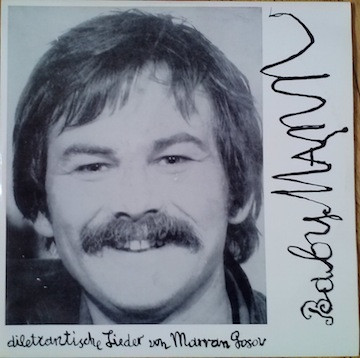 Baby MANN
dilettantische Lieder von Marran Gosov